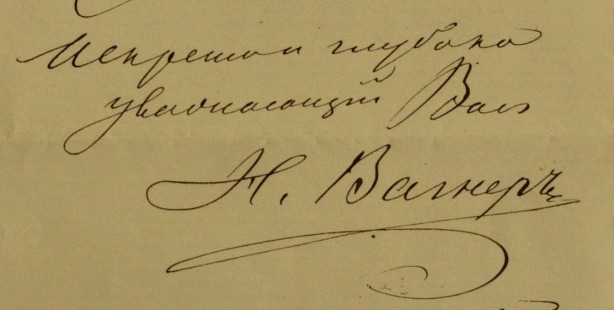 Искренно и глубоко
уважающий Васъ
Н. Вагнеръ